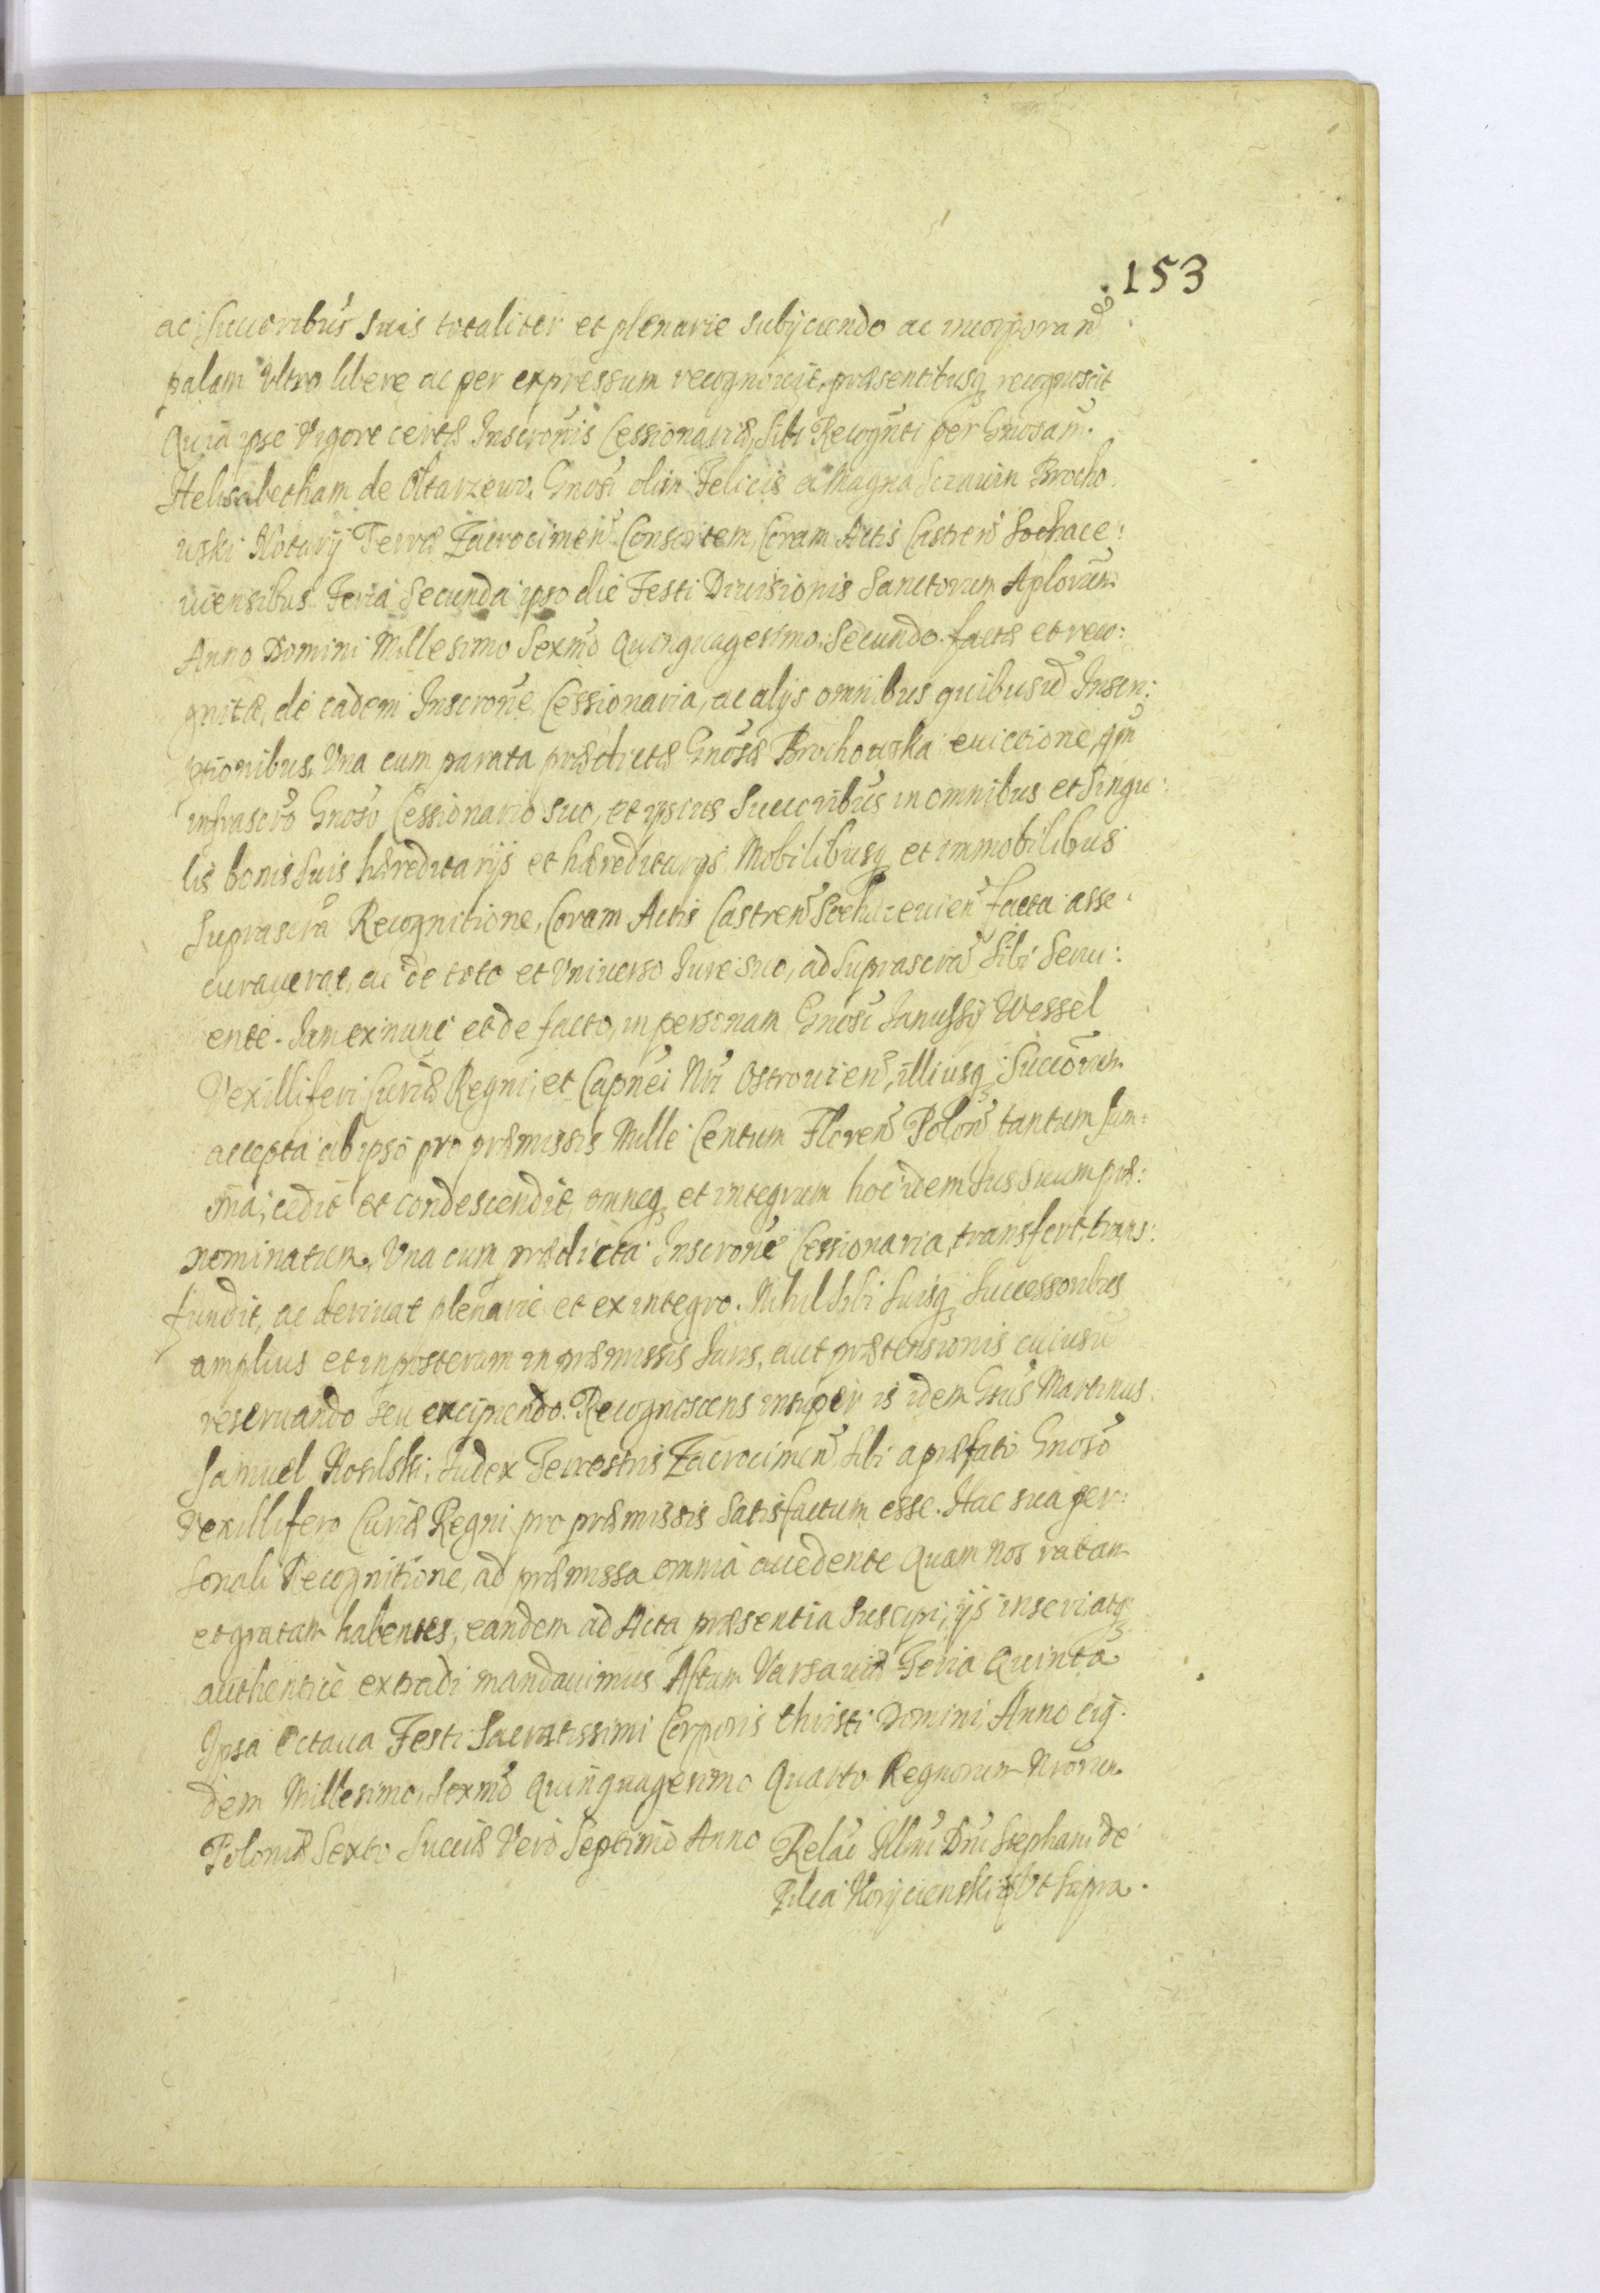 153
ac Succoribus suis totaliter et plenarie subijciendo ac incorporando
palam Ultro libere ac per expressum recognovit, præsentibusq recognoscit
Quia ipse Vigore certæ Inscronis Cessionariæ, Sibi Recognti per Gnosam
Helisabetham de Oltarzew, Gnosi olim Felicis a Magna Brocho
wski Notarij Terræ Zacrocimen Consortem, Coram Actis Castren Sochace:
viensibus Feria Secunda ipso die Festi Divisionis Sanctorum Aplorum
Anno Domini Millesimo Sexmo Quinquagesimo Secundo factæ et reco:
gnitæ, de eadem Inscrone Cessionaria, ac alijs omnibus quibusvis Inscri:
ptionibus, Una cum parata prædictæ Gnosæ Brochowska evictione, qm
infrascro Gnoso Cessionario suo, et ipsius Succoribus in omnibus et Singu:
lis bonis Suis hæreditarijs et hæreditarijs Mobilibusq et immobilibus
Suprascra Recognitione, Coram Actis Castren Sochacevien facta asse:
curaverat, ac de toto et Universo Jure suo, ad Suprascra Sibi Servi:
ente. Jam ex nunc et de facto, in personam Gnosi Janussij Wessel
Vexilliferi Curiæ Regni, et Capnei Nri Ostrovien, illiusq Succorum
accepta ab ipso pro præmissis Mille Centum Floren Polon tantum Sum:
ma, cedit et condescendit, omneq et integrum hoc idem Jus suum præ:
nominatum, Una cum prædicta Inscrone Cessionaria, transfert, trans:
fundit, ac derivat plenarie et ex integro. Nihil Sibi Suisq Successoribus
amplius et in posterum in præmissis Juris, aut prætensionis cuiusvis
reservando seu excipiendo. Recognoscens insuper is idem Gsus Martinus
Samuel Nosilski, Judex Terrestris Zacrocimen Sibi a præfato Gnoso
Vexillifero Curiæ Regni pro præmissis Satisfactum esse. Hac sua per:
sonali Recognitione, ad præmissa omnia accedente Quam nos ratam
et gratam habentes, eandem ad Acta præsentia Suscipi, ijs inseri, atq
authentice extradi mandavimus Actum Varsaviæ Feria Quinta
Ipsa Octava Festi Sacratissimi Corporis Christi Domini, Anno eius:
dem Millesimo, Sexmo Quinquagesimo Quarto Regnorum Nrorum
Poloniæ Sexto Sueciæ Vero Septimo Anno Relaô Illmi Dni Stephani de
Pilca Korijcienski Ut Supra.